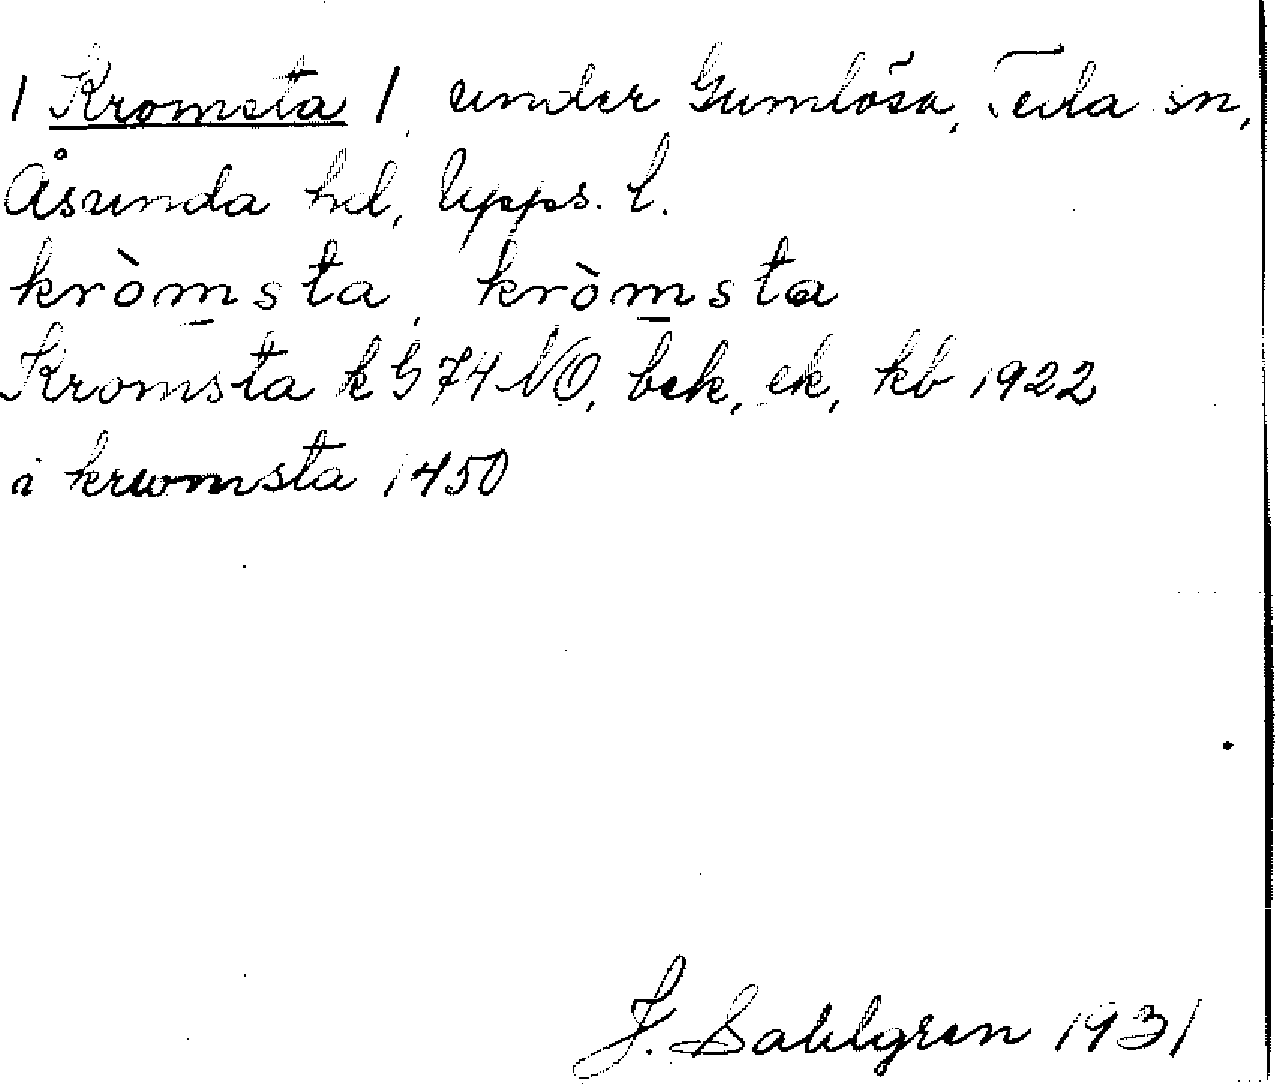 / Kromsta /, under Gumlösa, Tula sn,
Åsunda hd, Upps. l.
kròm̲sta, kròm̲sta
Kromsta k G 74 NO, bek, ek, kb 1922
i krwmsta 1450
J. Sahlgren 1931